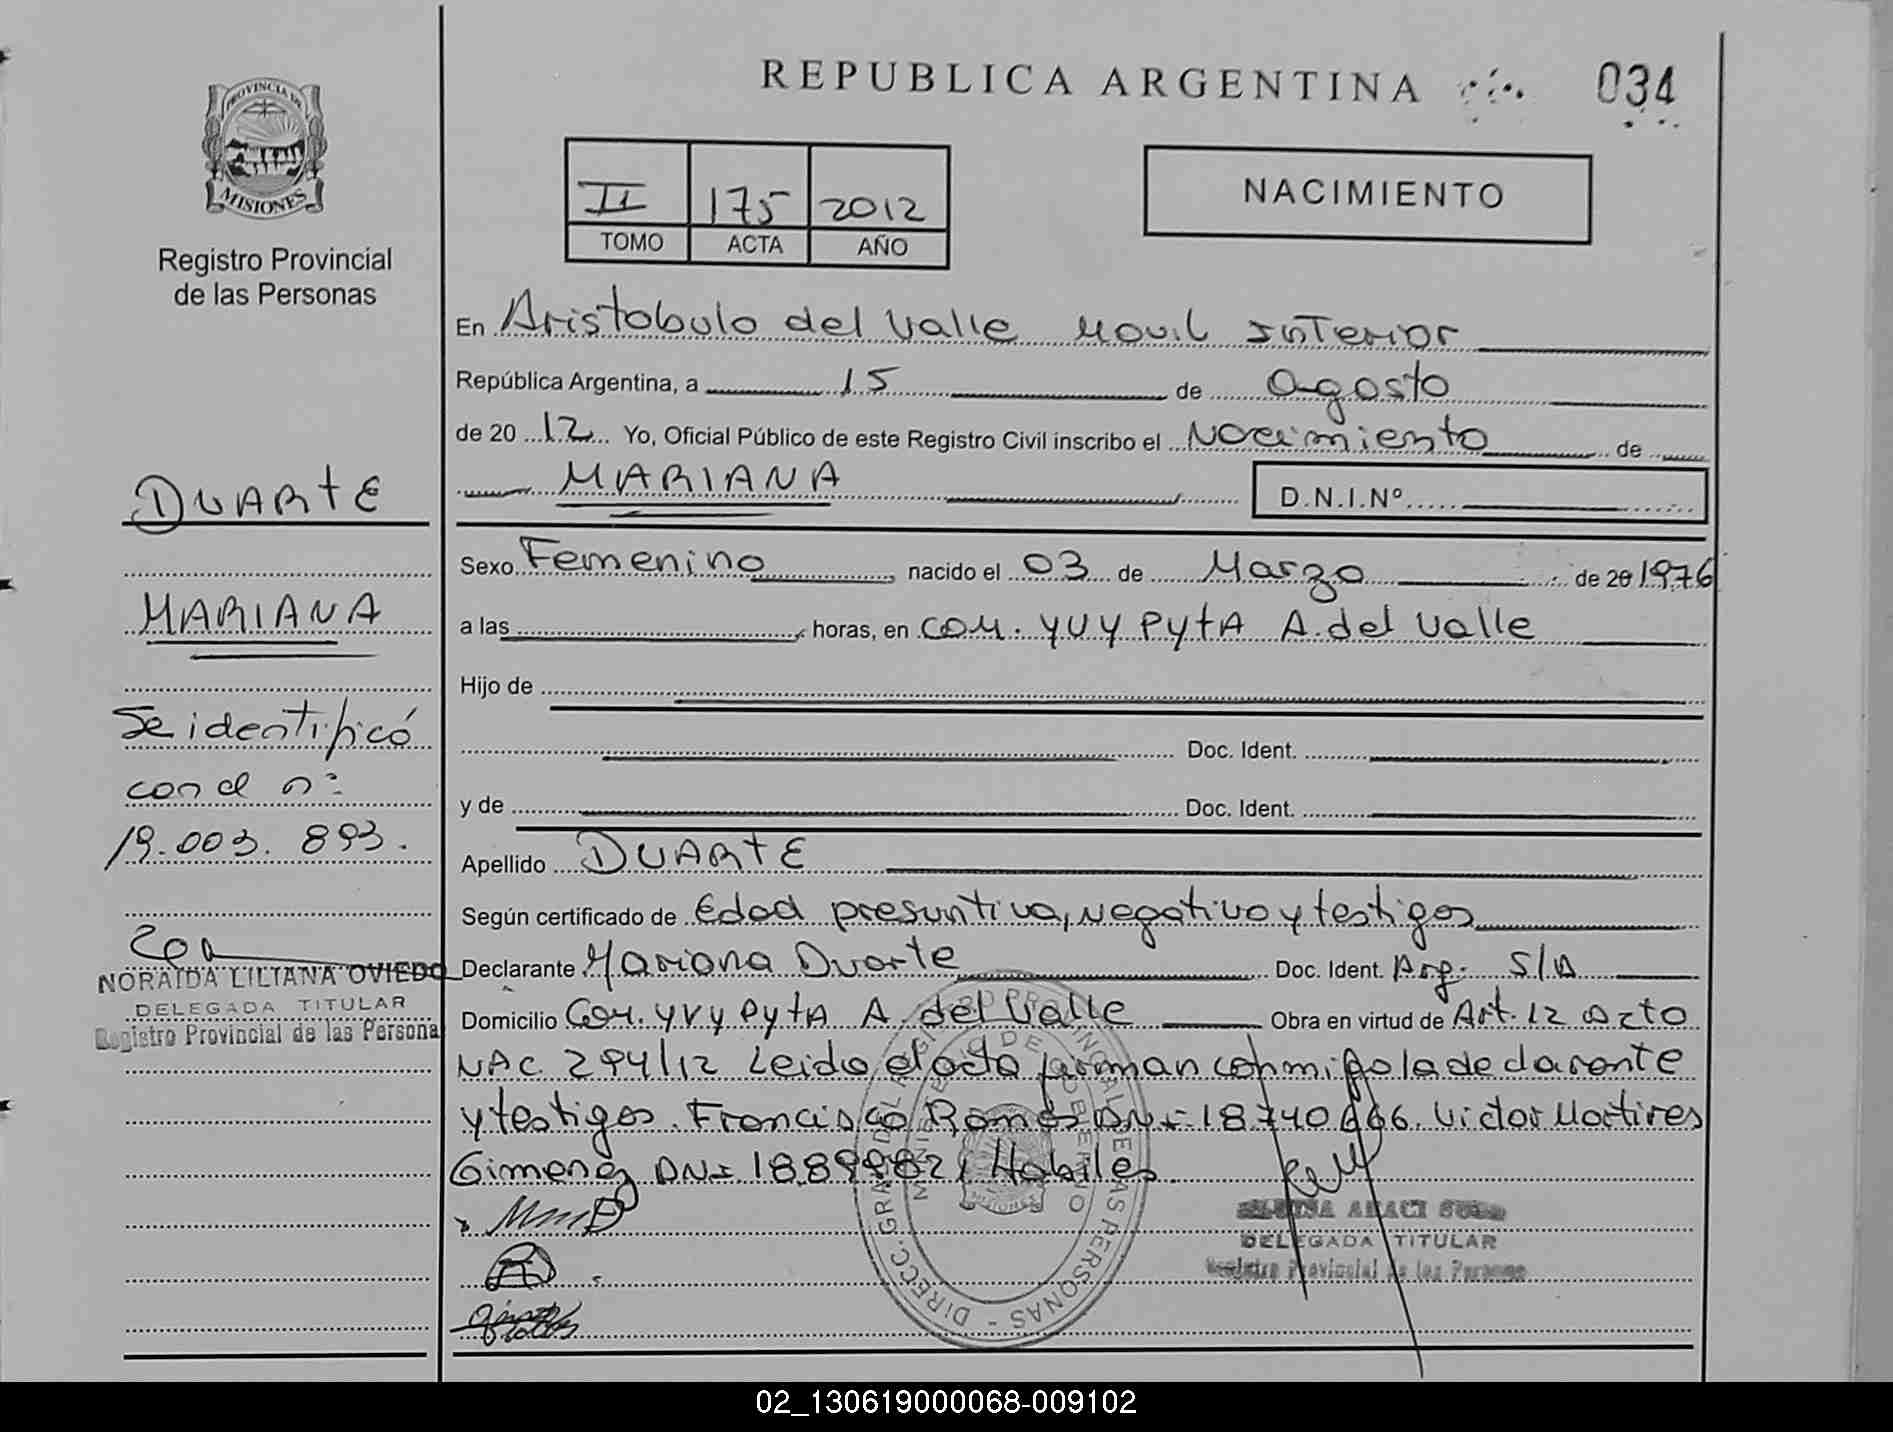 REPUBLICA ARGENTINA
034
PROVINCIA DE
MISIONES
Registro Provincial
de las Personas
II 175 2012
TOMO ACTA AÑO
NACIMIENTO
En Aristobulo del Valle Movil Interior
República Argentina, a 15 de agosto
de 20 12 Yo, Oficial Público de este Registro Civil inscribo el Nacimiento de
MARIANA D.N.I.Nº
Sexo Femenino nacido el 03 de Marzo de 20 1976
a las horas, en COM. YVY PYTA A. del Valle
Hijo de
Doc. Ident.
y de Doc. Ident.
Apellido DUARTE
Según certificado de Edad presuntiva, negativo y testigos
Declarante Mariana Duarte Doc. Ident. Arg. S/D
Domicilio Com. YVY PYTA A. del Valle Obra en virtud de Art. 12 acto
NAC. 294/12 Leido el acto firman conmigo la declarante
y testigos. Francisco Ramos DNI 18740666. Victor Martires
Gimenez DNI 18899821 Habiles
DELEGADA TITULAR
Registro Provincial de las Personas
DIRECC. GRAL. DEL REGISTRO PROVINCIAL DE LAS PERSONAS -
MINISTERIO DE GOBIERNO
MISIONES
DUARTE
MARIANA
Se identificó
con el nº
19.003.893.
NORAIDA LILIANA OVIEDO
DELEGADA TITULAR
Registro Provincial de las Persona
02_130619000068-009102